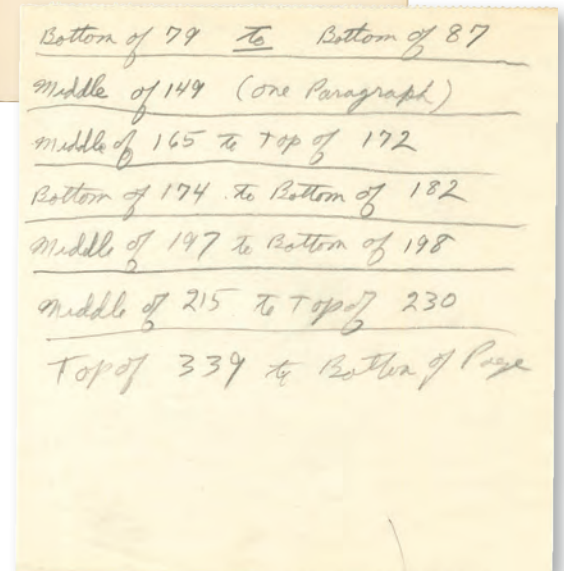 Bottom of 79 to Bottom of 87
Middle of 149 (one Paragraph)
Middle of 165 to Top of 172
Bottom of 174 to Bottom of 182
Middle of 197 to Bottom of 198
Middle of 215 to Top of 230
Top of 339 to Bottom of Page